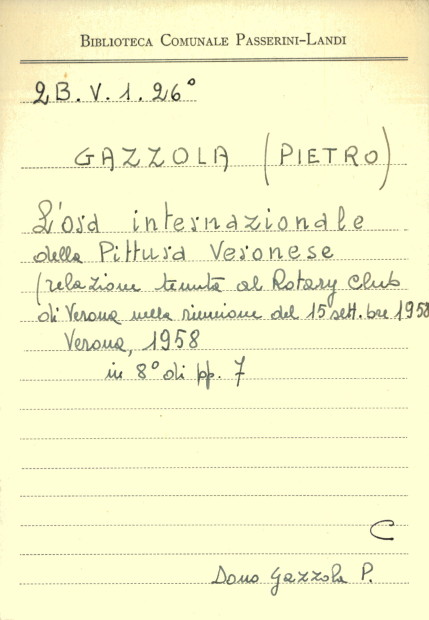 BIBLIOTECA COMUNALE PASSERINI-LANDI
2B. V. 1. 26°
GAZZOLA (PIETRO)
L'ora internazionale
della Pittura Veronese
(relazione tenuta al Rotary Club
di Verona nella riunione del 15 sett.bre 1958
Verona, 1958
in 8° di pp. 7
C
Dono Gazzola P.